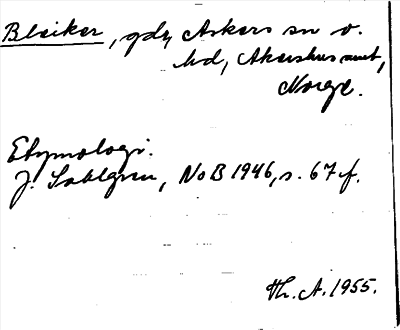 Bleiker, gde, Askers sn o.
hd, Akershus amt,
Norge.
Etymologi.
J. Sahlgren, NoB 1946, s. 67 f.
Th. A. 1955.